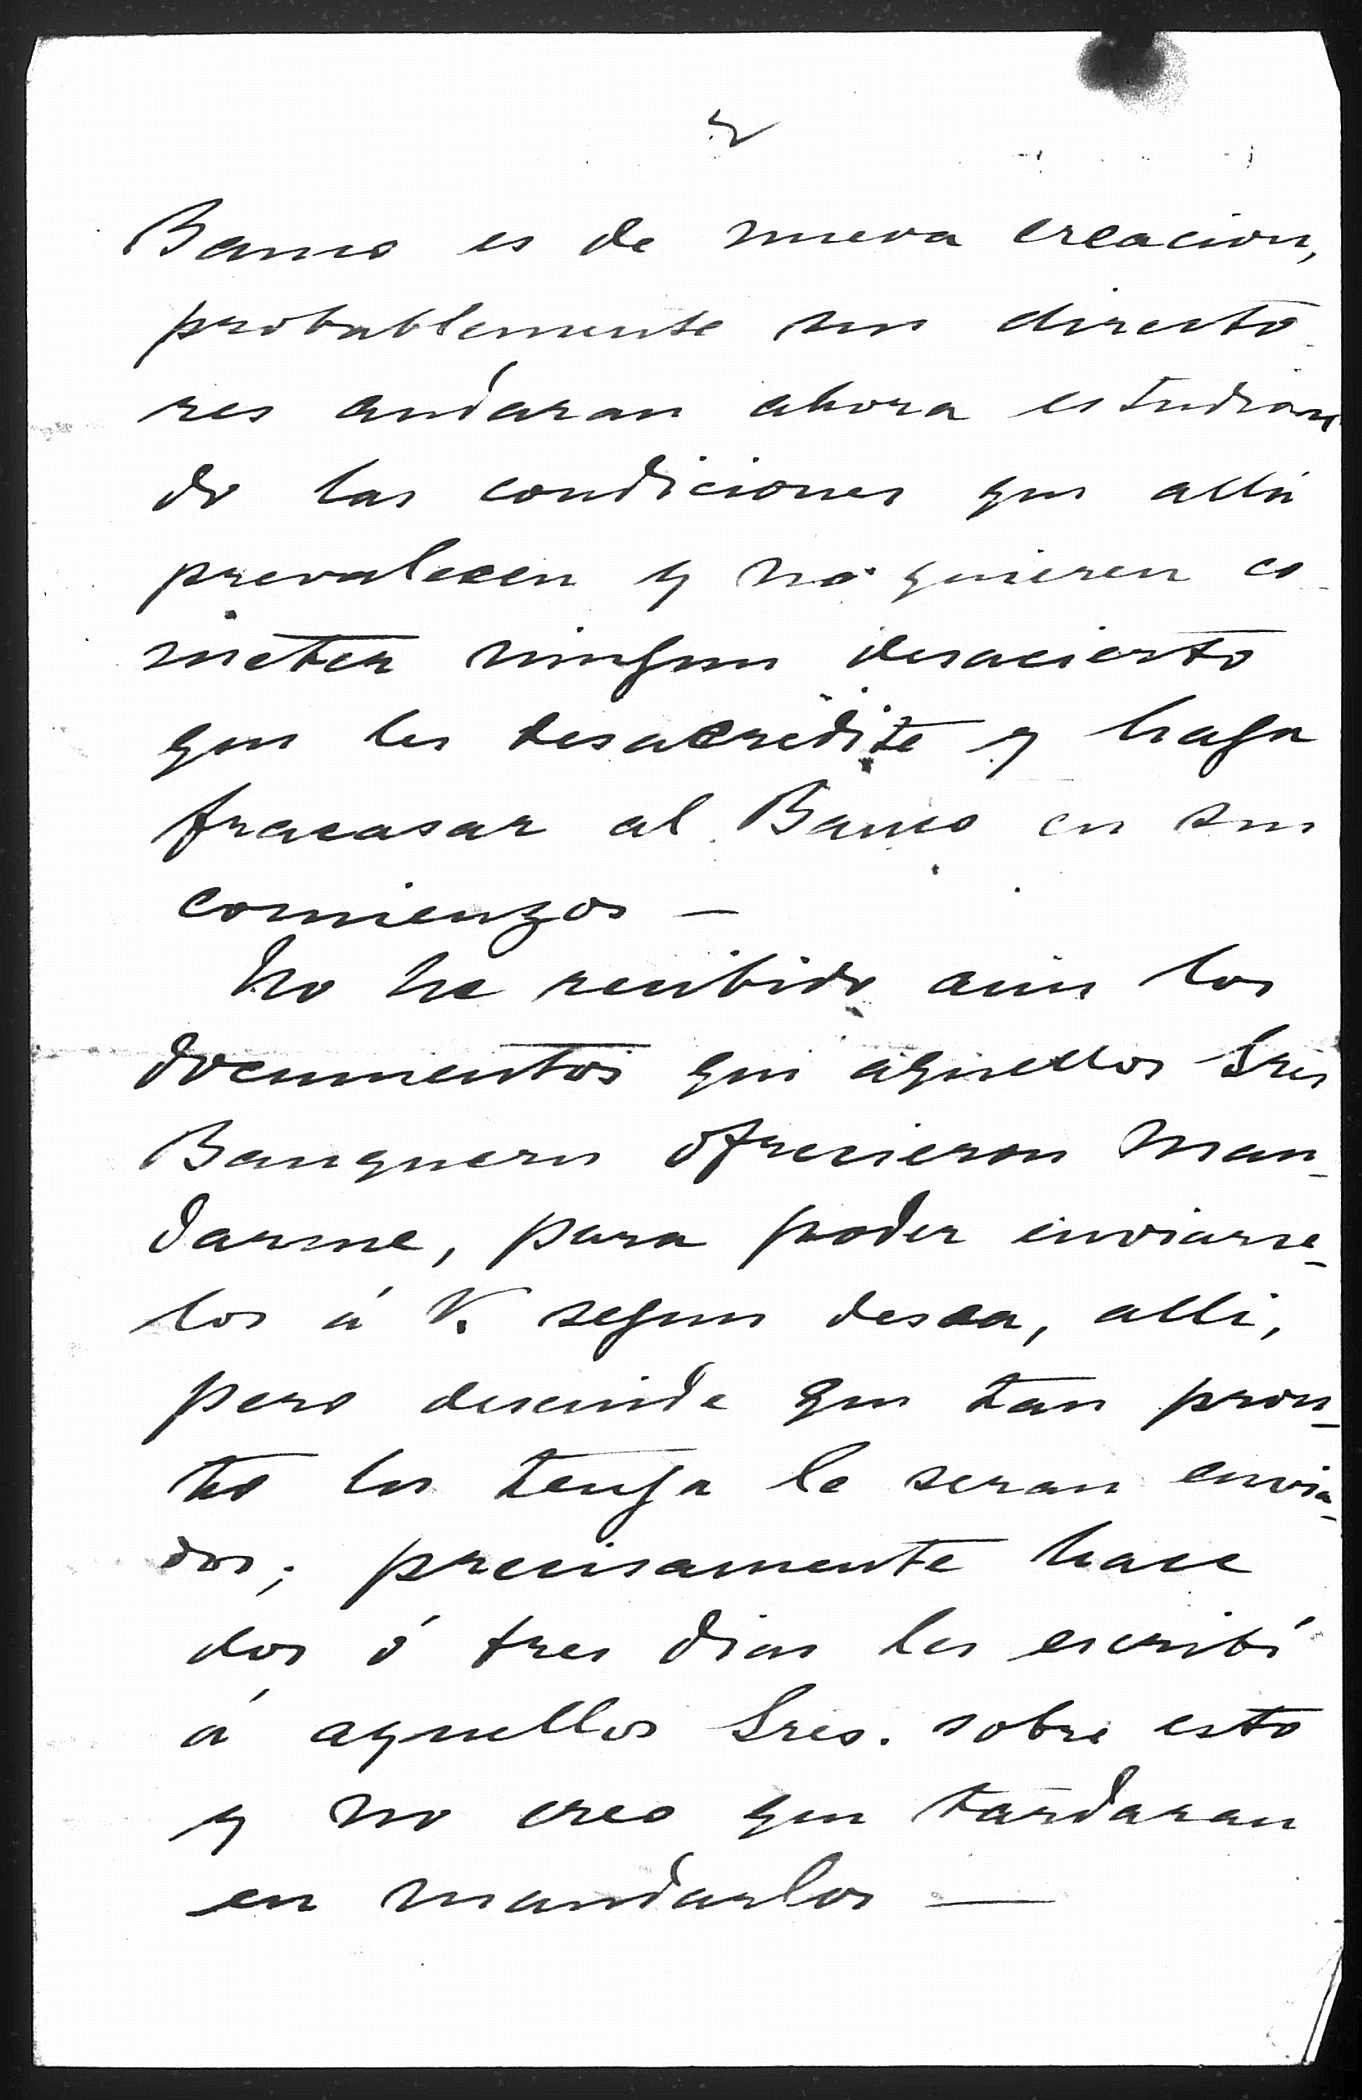 2
Banco es de nueva creacion,
probablemente sus directo-
res andaran ahora estudian
do las condiciones que allá
prevalecen y no quieren co-
meter ningun desacierto
que les desacredite y haga
fracasar al Banco en sus
comienzos —
No he recibido aún los
documentos que aquellos Sres
Banqueros ofrecieron man-
darme, para poder enviarse-
los á V. segun desea, alli,
pero descuide que tan pron-
to los tenga le seran envia-
dos; precisamente hace
dos ó tres dias les escribí
á aquellos Sres. sobre esto
y no creo que tardaran
en mandarlos —